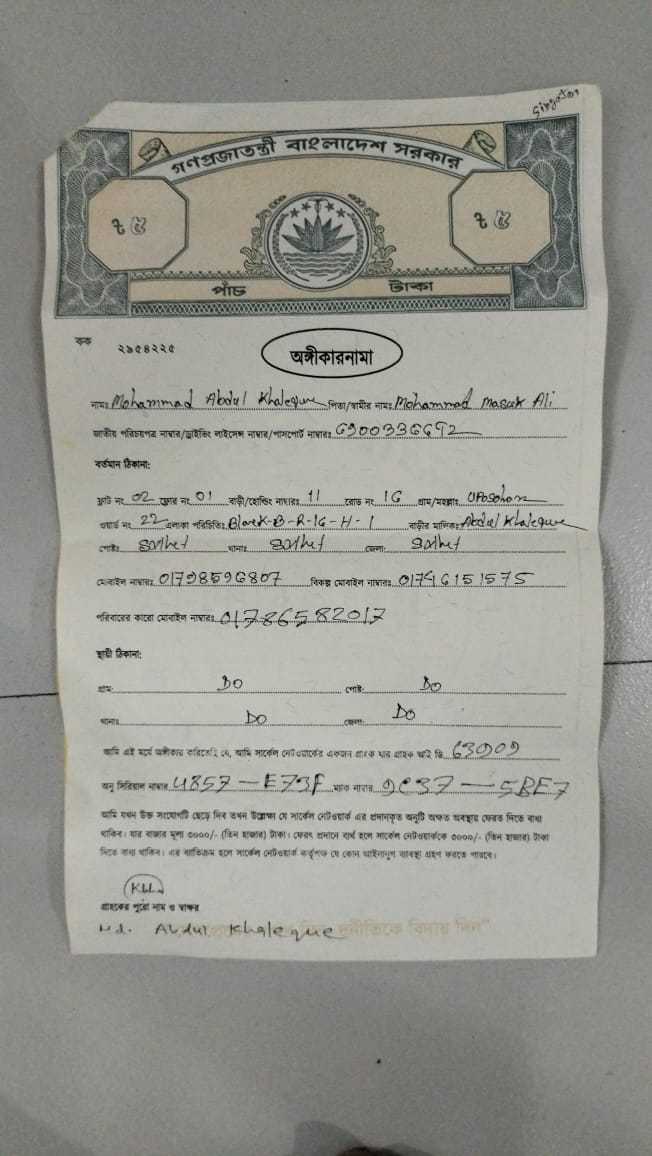 গণপ্রজাতন্ত্রী বাংলাদেশ সরকার
৳ ৫ ৳ ৫
পাঁচ টাকা
কক ২৯৫৪২২৫
অঙ্গীকারনামা
নামঃ Mohammad Abdul Khaleque পিতা/স্বামীর নামঃ Mohammad Ali
জাতীয় পরিচয়পত্র নাম্বার/ড্রাইভিং লাইসেন্স নাম্বার/পাসপোর্ট নাম্বারঃ
বর্তমান ঠিকানা:
ফ্লাট নং 02 ফ্লোর নং 01 বাড়ী/হোল্ডিং নাম্বারঃ 11 রোড নং 1G গ্রাম/মহল্লাঃ
ওয়ার্ড নং 22 এলাকা পরিচিতিঃ Block-B-R-1G-H-1 বাড়ীর মালিকঃ Abdul Khaleque
পোষ্টঃ Sylhet থানাঃ Sylhet জেলা: Sylhet
মোবাইল নাম্বারঃ 01798596807 বিকল্প মোবাইল নাম্বারঃ 01746151575
পরিবারের কারো মোবাইল নাম্বারঃ 01786582017
স্থায়ী ঠিকানা:
গ্রাম: Do পোষ্ট: Do
থানাঃ Do জেলা: Do
আমি এই মর্মে অঙ্গীকার করিতেছি যে, আমি সার্কেল নেটওয়ার্কের একজন গ্রাহক যার গ্রাহক আই ডি
অনু সিরিয়াল নাম্বার 4857-E73F ম্যাক নাম্বার 9C37-5BE7
আমি যখন উক্ত সংযোগটি ছেড়ে দিব তখন উল্লেক্ষ্য যে সার্কেল নেটওয়ার্ক এর প্রদানকৃত অনুটি অক্ষত অবস্থায় ফেরত দিতে বাধ্য
থাকিব। যার বাজার মূল্য ৩০০০/- (তিন হাজার) টাকা। ফেরৎ প্রদানে ব্যর্থ হলে সার্কেল নেটওয়ার্ককে ৩০০০/- (তিন হাজার) টাকা
দিতে বাধ্য থাকিব। এর ব্যতিক্রম হলে সার্কেল নেটওয়ার্ক কর্তৃপক্ষ যে কোন আইনানুগ ব্যবস্থা গ্রহণ করতে পারবে।
গ্রাহকের পুরো নাম ও স্বাক্ষর
Md. Abdul Khaleque দুর্নীতিকে বিদায় দিন"